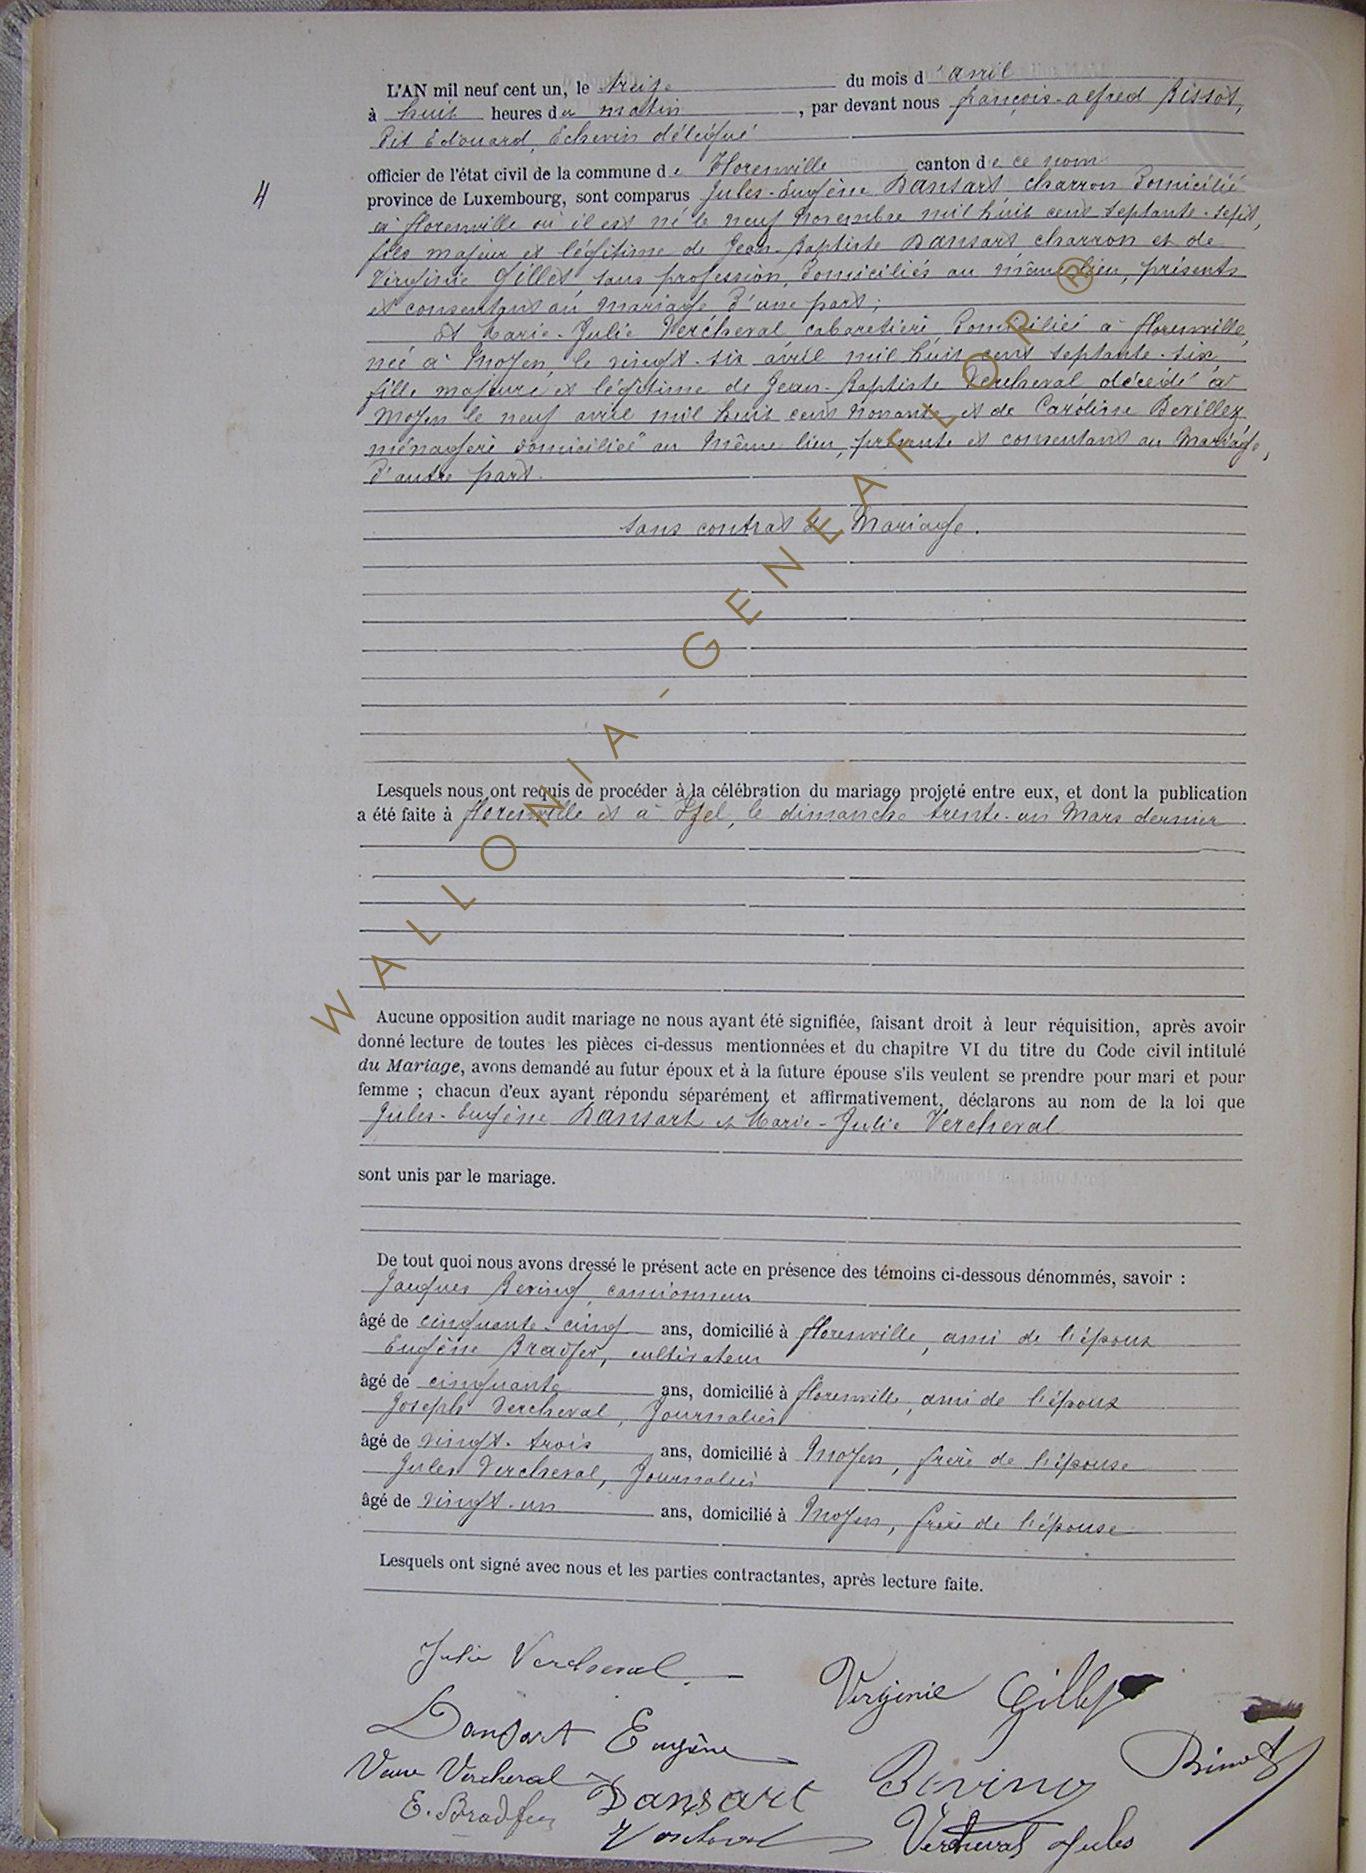 L'AN mil neuf cent un, le treize du mois d'avril
à huit heures du matin, par devant nous françois-alfred
Dit Edouard, Echevin délégué
officier de l'état civil de la commune de Florenville canton de ce nom
4
province de Luxembourg, sont comparus Jules-Eugène Dansart charron Domicilié
à florenville où il est né le neuf Novembre mil huit cent septante-sept,
fils majeur et légitime de Jean-Baptiste Dansart charron et de
Virginie Gillet sans profession, Domiciliés au même lieu, présents
et consentant au Mariage D'une part;
et Marie-Julie Vercheval cabaretière Domiciliée à florenville,
née à Moyen, le vingt-six avril mil huit cent septante-six
fille majeure et légitime de Jean-Baptiste Vercheval décédé à
Moyen le neuf avril mil huit cent nonante et de Caroline Devillez
ménagère domiciliée au même lieu, présente et consentant au Mariage,
D'autre part.
sans contrat de Mariage.
WALLONIA-GENEAFLOR ®
Lesquels nous ont requis de procéder à la célébration du mariage projeté entre eux, et dont la publication
a été faite à florenville et à Izel, le dimanche trente-un Mars dernier
Aucune opposition audit mariage ne nous ayant été signifiée, faisant droit à leur réquisition, après avoir
donné lecture de toutes les pièces ci-dessus mentionnées et du chapitre VI du titre du Code civil intitulé
du Mariage, avons demandé au futur époux et à la future épouse s'ils veulent se prendre pour mari et pour
femme ; chacun d'eux ayant répondu séparément et affirmativement, déclarons au nom de la loi que
Jules-Eugène Dansart et Marie-Julie Vercheval
sont unis par le mariage.
De tout quoi nous avons dressé le présent acte en présence des témoins ci-dessous dénommés, savoir :
Jacques Beving, camionneur
âgé de cinquante-cinq ans, domicilié à florenville, ami de l'époux
Eugène Bradfer, cultivateur
âgé de cinquante ans, domicilié à florenville, ami de l'époux
Joseph Vercheval, Journalier
âgé de vingt-trois ans, domicilié à Moyen, frère de l'épouse
Jules Vercheval, Journalier
âgé de vingt-un ans, domicilié à Moyen, frère de l'épouse
Lesquels ont signé avec nous et les parties contractantes, après lecture faite.
Julie Vercheval
Virginie Gillet
Dansart Eugène
Veuve Vercheval
Dansart
Beving
E. Bradfer
Vercheval
Vercheval Jules